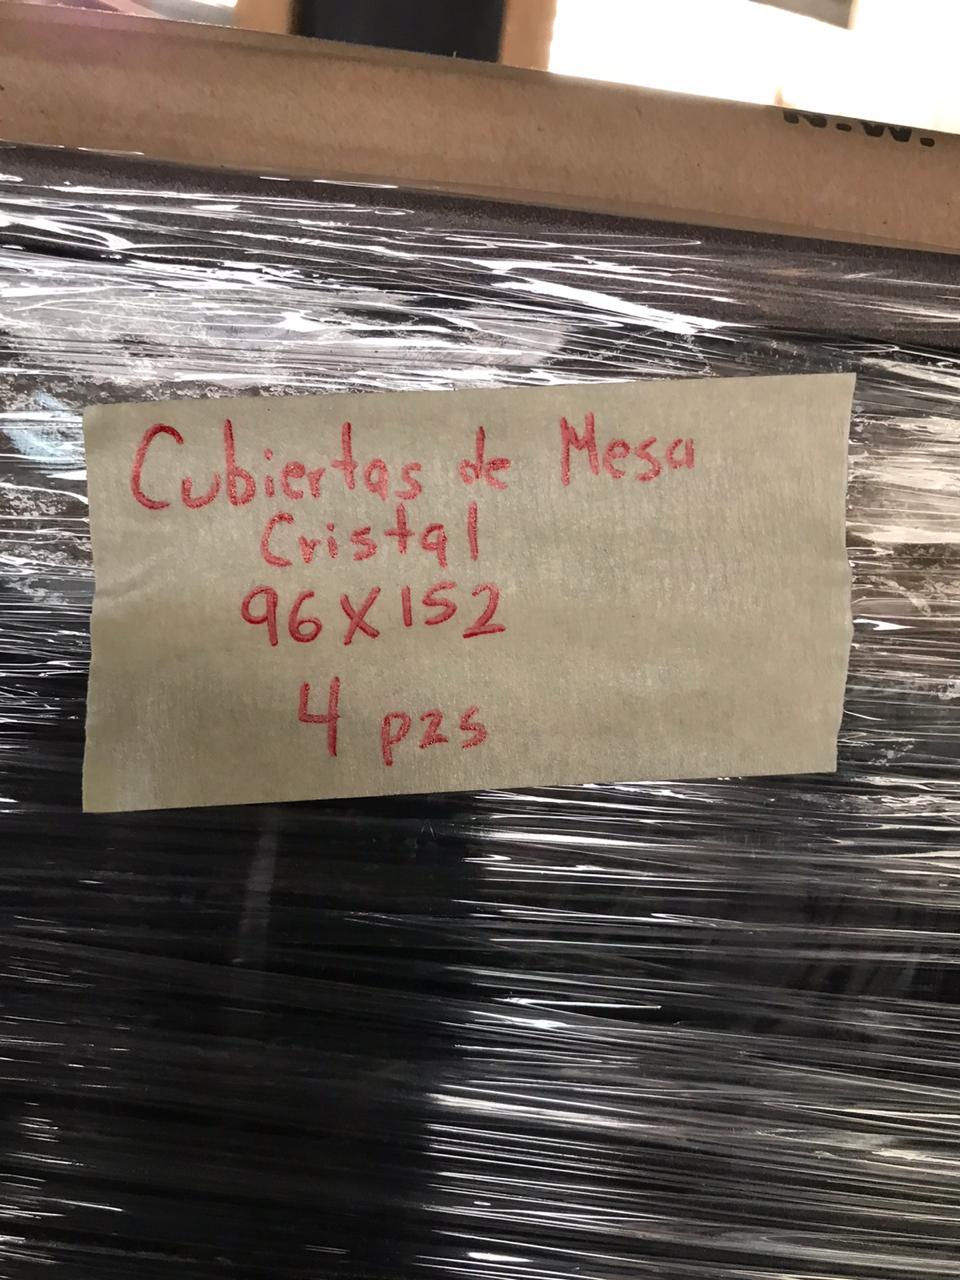 N.W.
Cubiertas de Mesa
Cristal
96X152
4 pzs